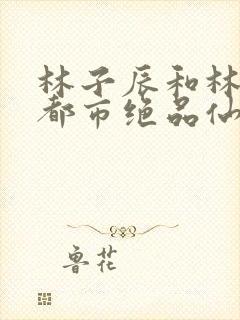 林子辰和林
都市绝品仙
鲁花